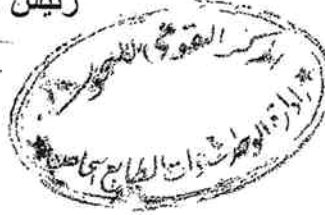 رئيس
المركز القومي للبحوث
إدارة الوحدات ذات الطابع الخاص